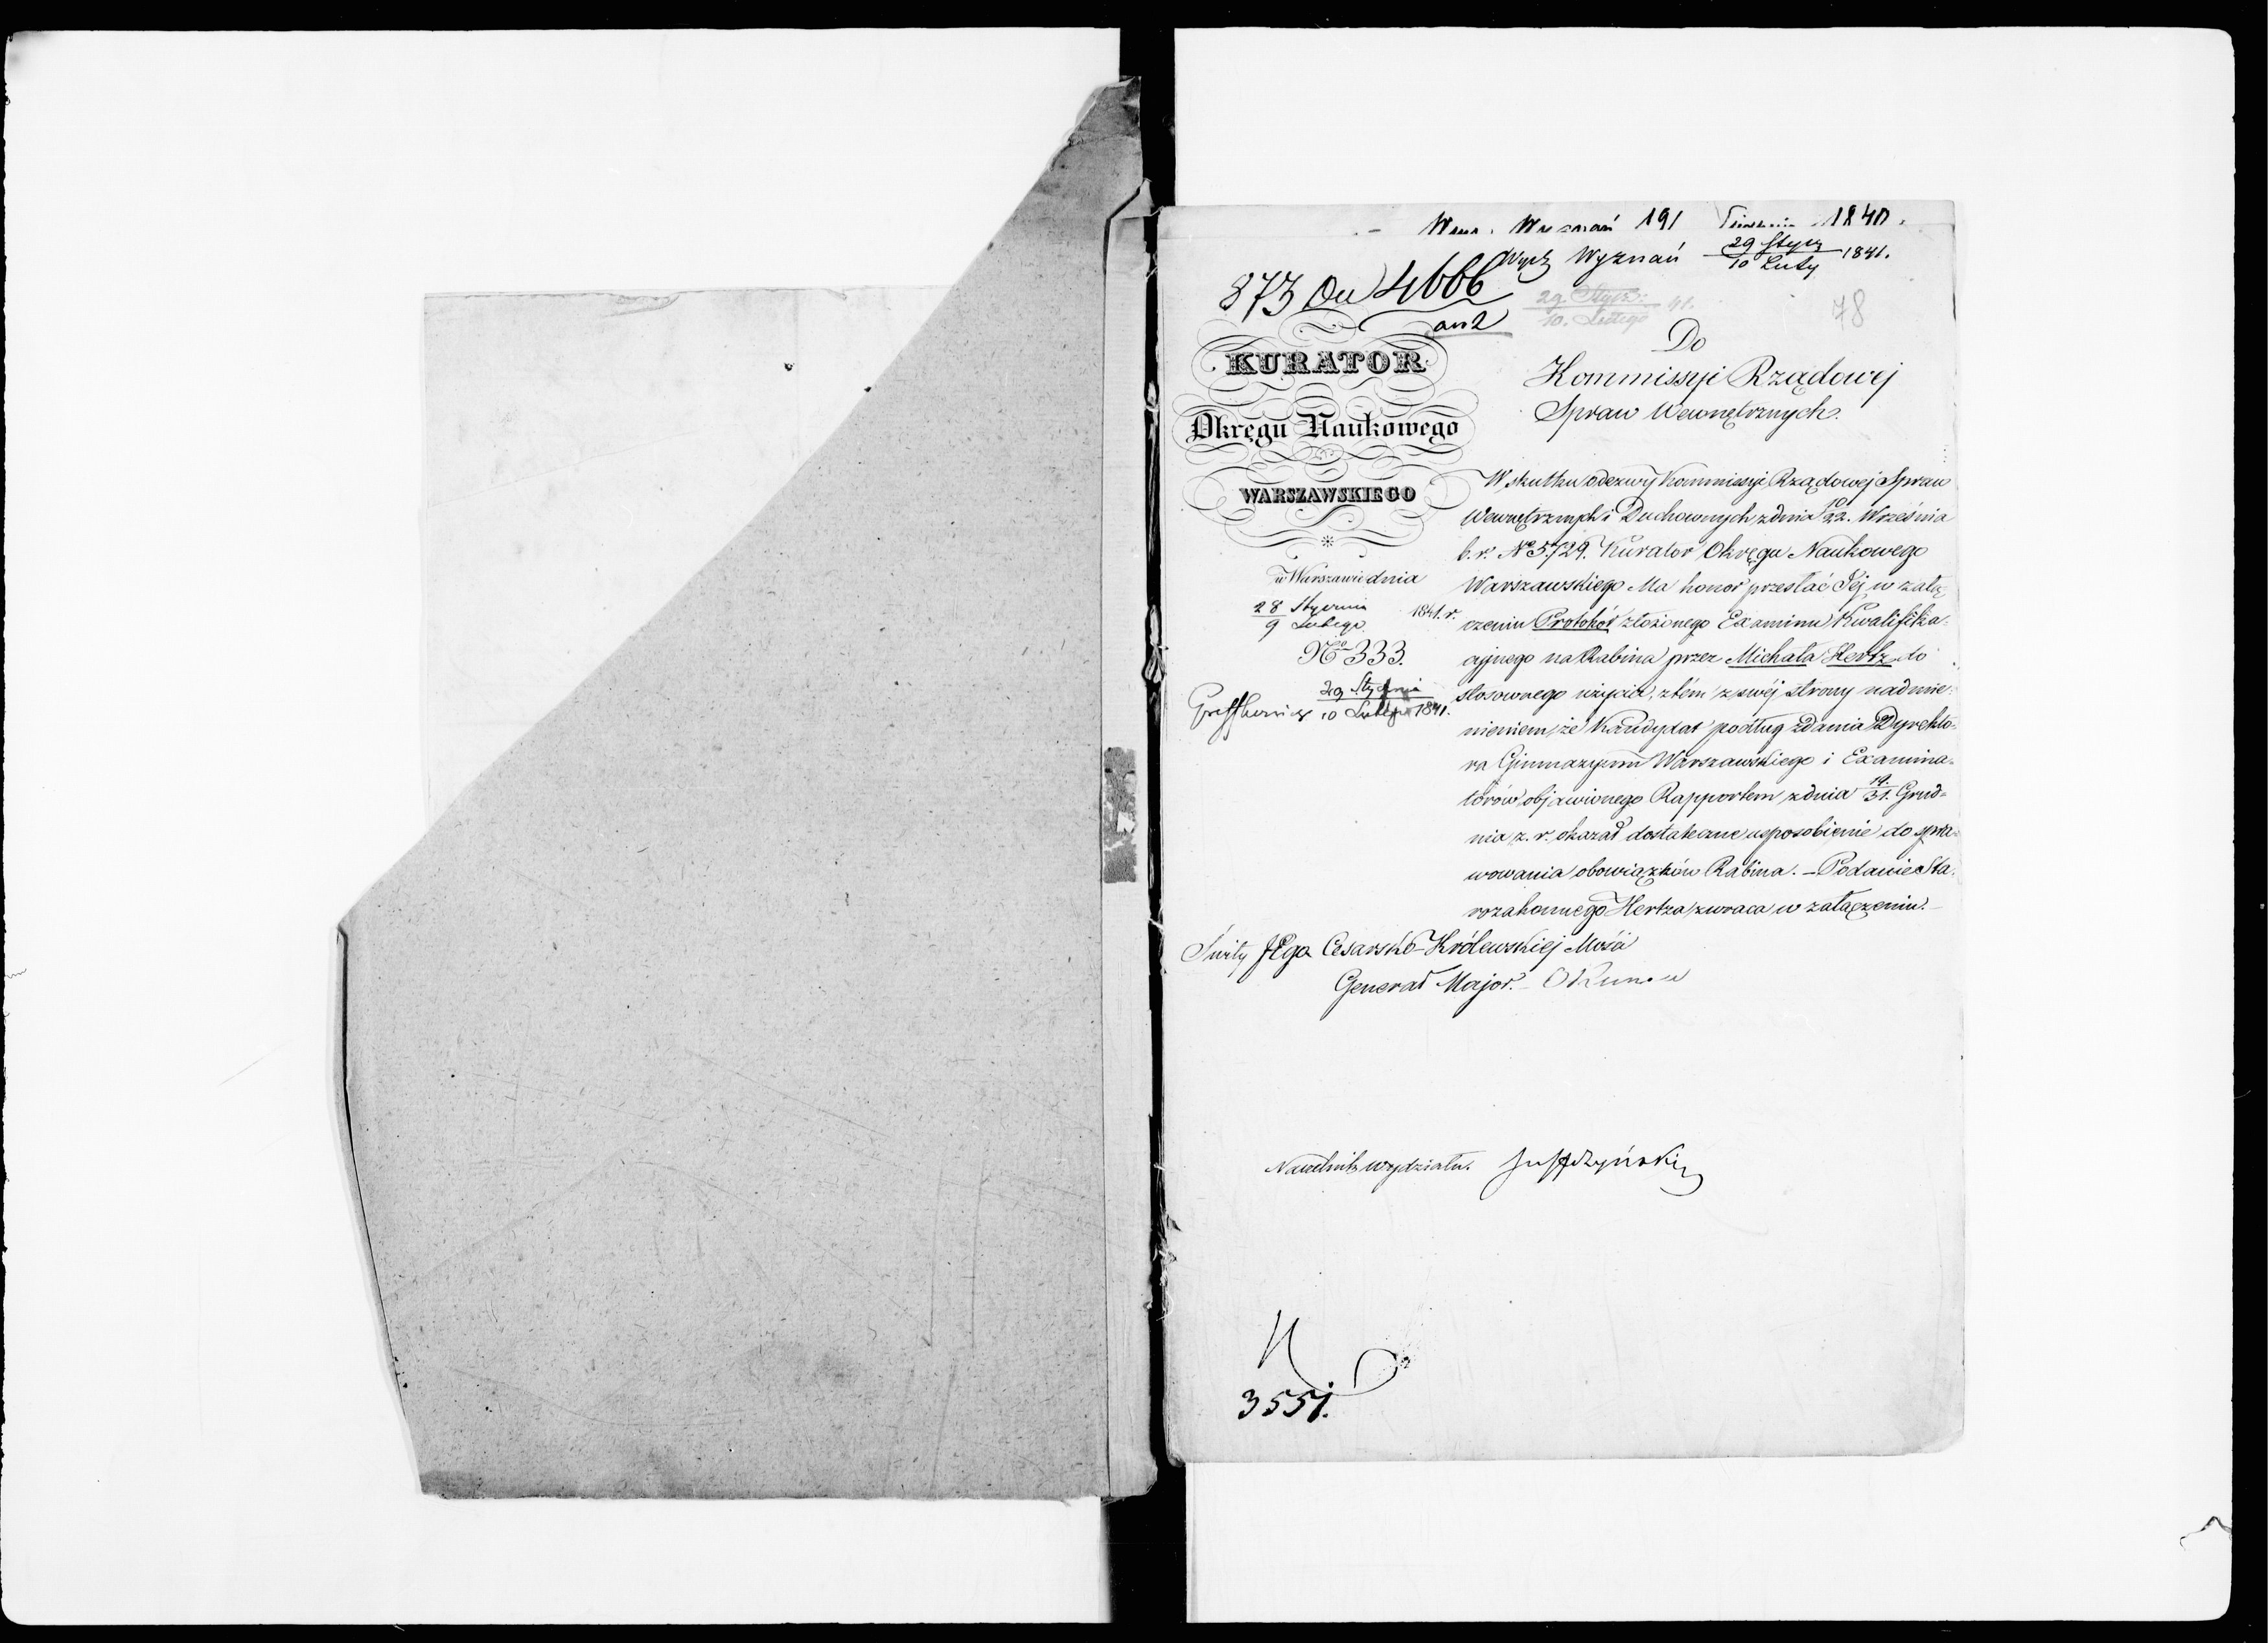 191 1840.
Wydz Wyznań 29 Stycz 1841.
10 Luty
873 Du 4666
an 2
29. Stycz: 41.
10. Lutego
78
KURATOR
Okręgu Naukowego
WARSZAWSKIEGO
w Warszawie dnia
28 Stycznia 1841. r.
9 Lutego
No 333.
29 Stycznia
10 Lutego 1841.
Do
Kommissyi Rządowej
Spraw Wewnętrznych.
W skutku odezwy Kommissyi Rządowej Spraw
Wewnętrznych i Duchownych z dnia 10/22. Września
b. r. No 5729. Kurator Okręgu Naukowego
Warszawskiego Ma honor przesłać Jej w załą-
czeniu Protokół złożonego Examinu Kwalifika-
cyjnego na Rabina przez Michała Hertz do
stosownego użycia, z tém z swéj strony nadmie-
nieniem, że Kandydat podług zdania Dyrekto-
ra Gimnazyum Warszawskiego i Examina-
torów objawionego Rapportem z dnia 19./31. Grud-
nia z. r. okazał dostateczne usposobienie do spra-
wowania obowiązków Rabina. – Podanie Sta-
rozakonnego Hertza zwraca w załączeniu. –
Świty Jego Cesarsko-Królewskiej Mości
Generał Major. –
Naczelnik wydziału.
3551.